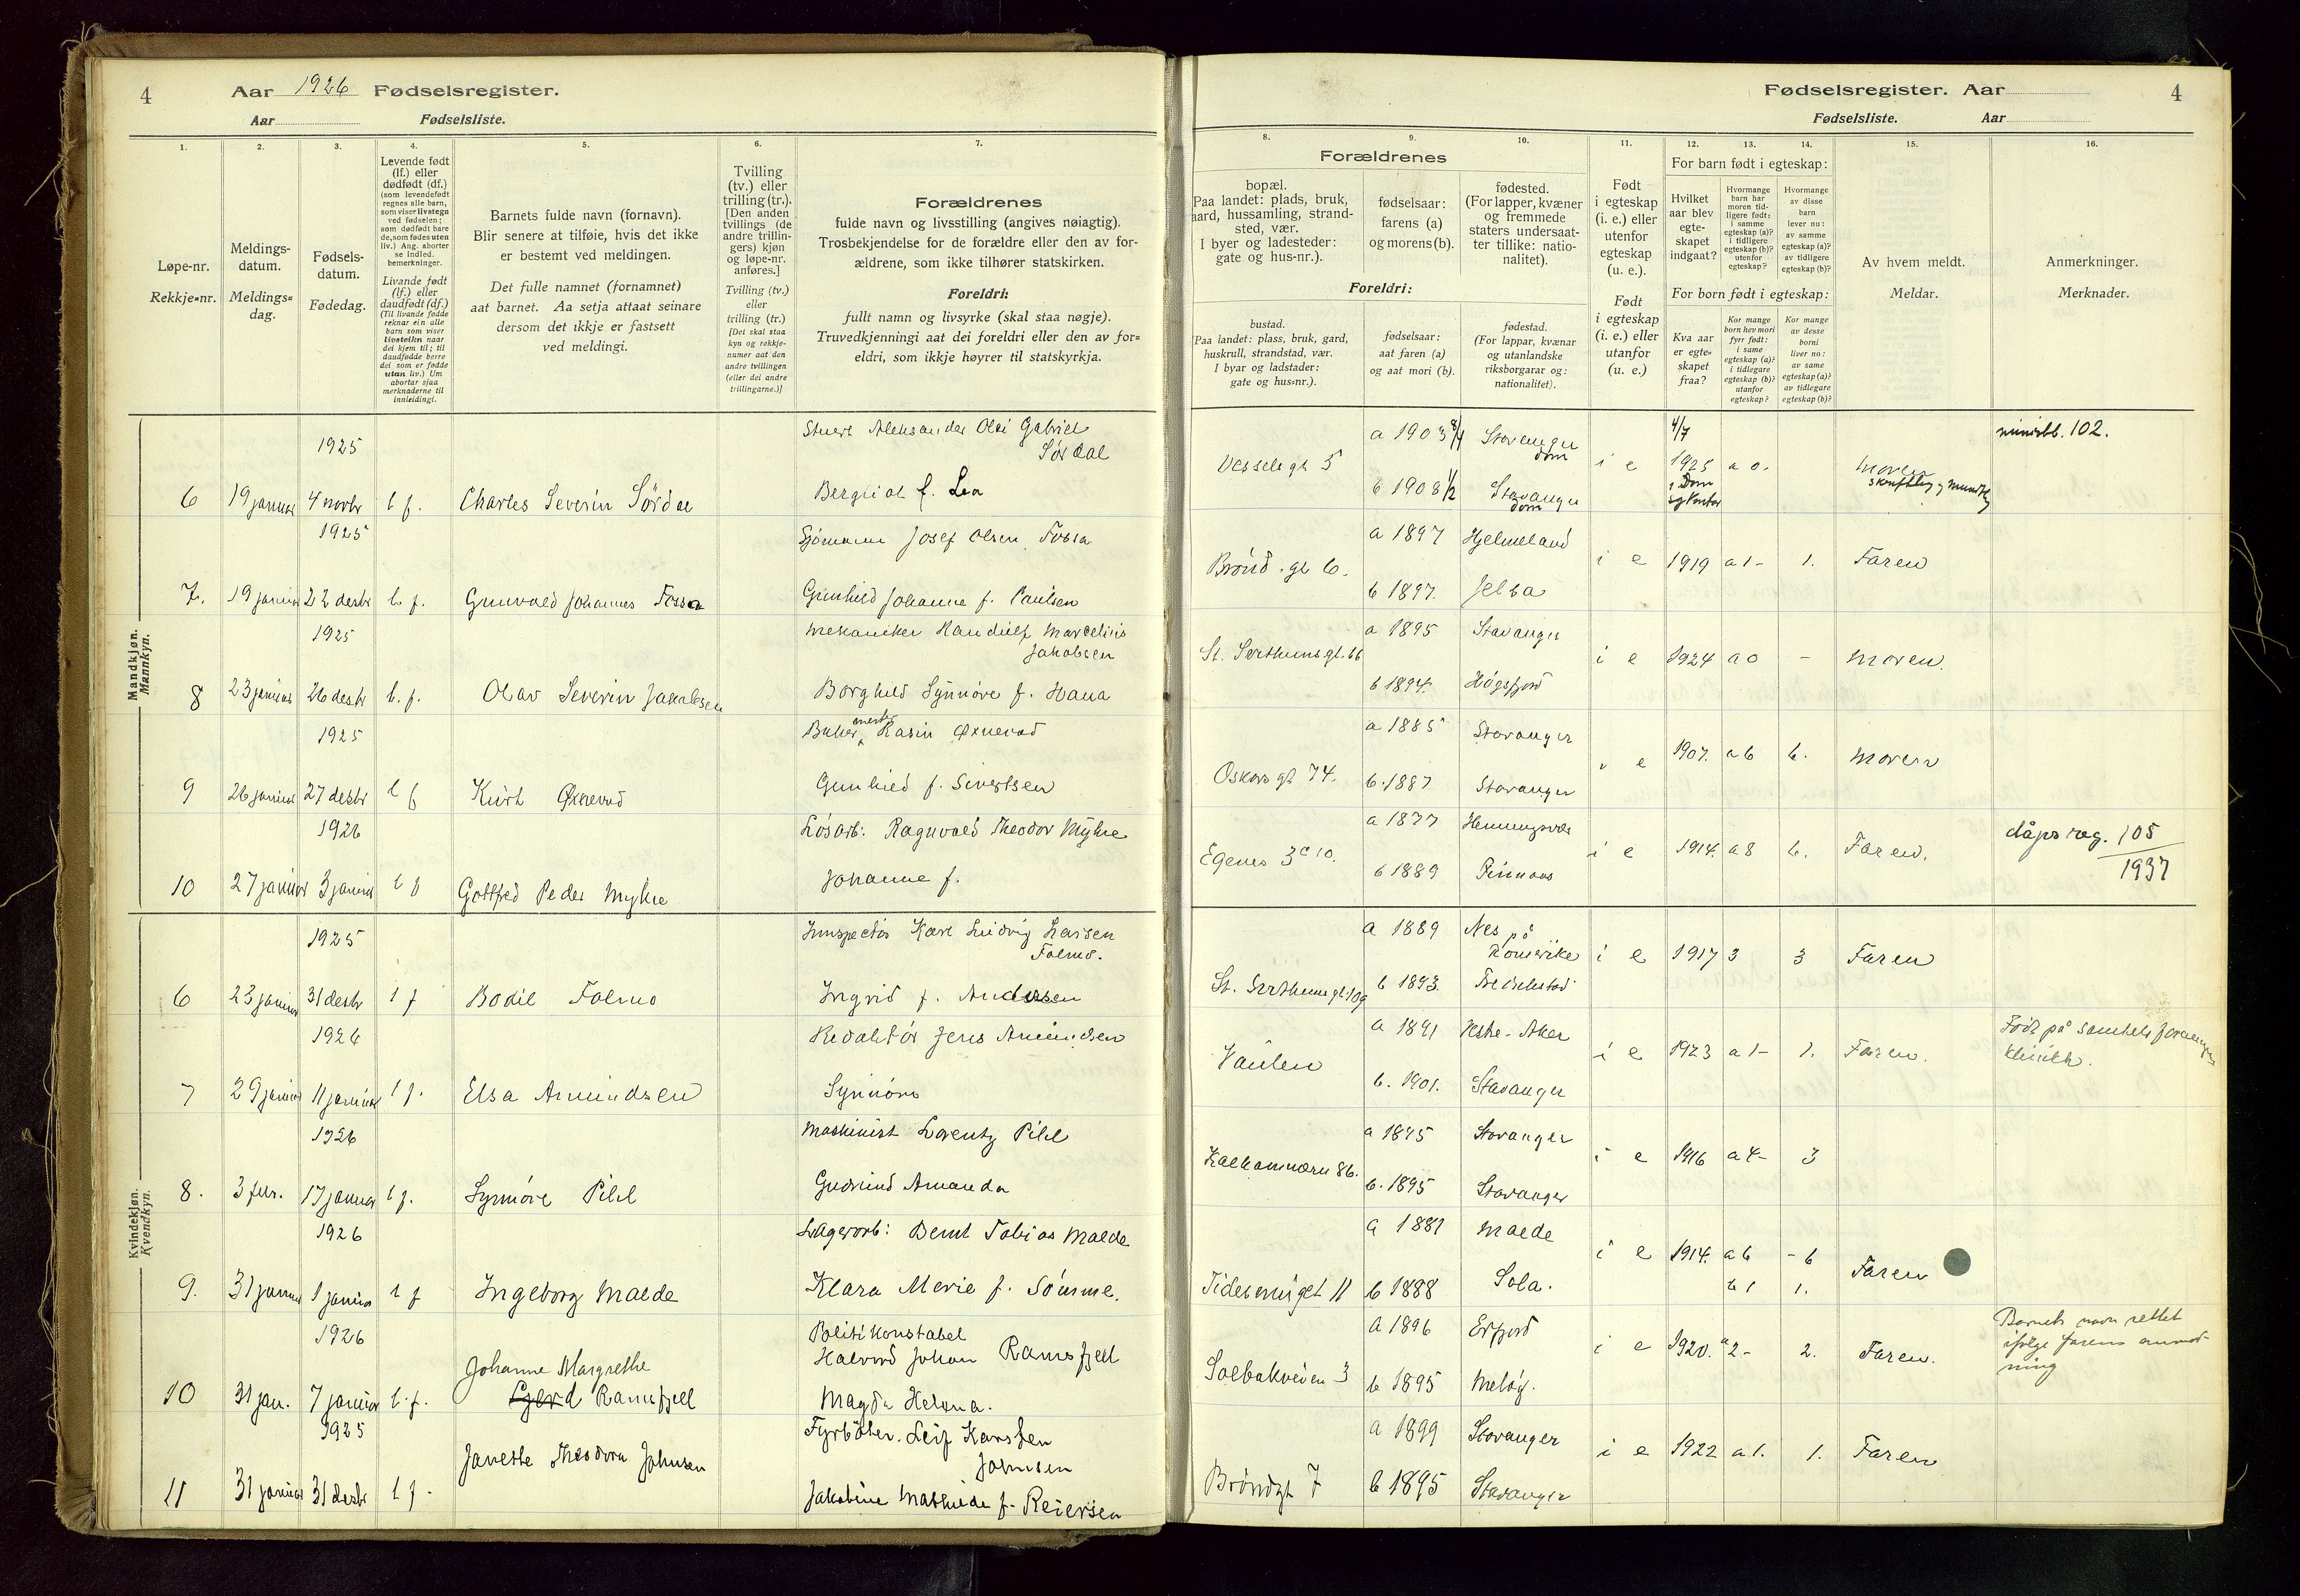 4
Aar 1926 Fødselsregister.
Aar Fødselsliste.
1.
2.
3.
4.
5.
6.
7.
Løpe-nr.
Rekkje-nr.
Meldings-
datum.
Meldings-
dag.
Fødsels-
datum.
Fødedag.
Levende født
(lf.) eller
dødfødt (df.)
(som levendefødt
regnes alle barn,
som viser livstegn
ved fødselen;
som dødfødt bare
de, som fødes uten
liv.) Ang. aborter
se indled.
bemerkninger.
Livande født
(lf.) eller
daudfødt (df.)
(Til livande fødde
reknar ein alle
barn som viser
livsteikn naar
dei kjem til; til
daudfødde berre
dei som er fødde
utan liv.) Um
abortar sjaa
merknaderne til
innleidingi.
Barnets fulde navn (fornavn).
Blir senere at tilføie, hvis det ikke
er bestemt ved meldingen.
Det fulle namnet (fornamnet)
aat barnet. Aa setja attaat seinare
dersom det ikkje er fastsett
ved meldingi.
Tvilling
(tv.) eller
trilling (tr.).
[Den anden
tvillings (de
andre trillin-
gers) kjøn
og løpe-nr.
anføres.]
Tvilling (tv.)
eller
trilling (tr.)
[Det skal staa
kyn og rekkje-
numer aat den
andre tvillingen
(eller dei andre
trillingarne.)]
Forældrenes
fulde navn og livsstilling (angives nøiagtig).
Trosbekjendelse for de forældre eller den av for-
ældrene, som ikke tilhører statskirken.
Foreldri:
fullt namn og livsyrke (skal staa nøgje).
Truvedkjenningi aat dei foreldri eller den av for-
eldri, som ikkje høyrer til statskyrkja.
Mandkjøn.
Mannkyn.
1925
6 19 januar 4 novbr l f. Charles Severin Sørdal
Aleksander Gabriel
Sørdal
f. Lea
1925
7. 19 januar 22 desbr l. f. Gunvald Johannes Fossa
Sjømann Josef Olsen Fossa
Gunhild Johanne f. Paulsen
1925
8 23 januar 26 desbr l. f. Olav Severin Jakobsen
mekaniker Marcelius
Jakobsen
Borghild Synnøve f. Hana
1925
9 26 januar 27 desbr l f Kurt Øxnevad
Baker mester Rasin Øxnevad
Gunhild f. Sivertsen
1926
10 27 januar 3 januar l f Gottfred Peder Myhre
Løsarb: Ragnvald Theodor Myhre
Johanne f.
Kvindekjøn.
Kvendkyn.
1925
6 23 januar 31 desbr l f Bodil Folmo
Karl Ludvig Larsen
Folmo.
Ingrid f. Andersen
1926
7 29 januar 11 januar l f. Elsa Amundsen
Redaktør Jens Amundsen
Synnøve
1926
8. 3 febr. 17 januar l f. Synnøve Pihl
Maskinist Lorentz Pihl
Gudrund Amanda
1926
9. 31 januar 1 januar l f Ingeborg Malde
Lagerarb: Bernt Tobias Malde
Klara Marie f. Sømme.
1926
Johanne Margrethe
10 31 jan. 7 januar l. f. Gjerd Ramsfjell
Politikonstabel
Halvord Johan Ramsfjell
Magda Helena.
1925
11 31 januar 31 desbr l f. Janette Theodora Johnsen
Fyrbøter. Leif Karsten
Johnsen
Jakobine Mathilde f. Reiersen
Fødselsregister. Aar 4
Fødselsliste. Aar
8.
9.
10.
11.
12.
13.
14.
15.
16.
Forældrenes
bopæl.
Paa landet: plads, bruk,
gaard, hussamling, strand-
sted, vær.
I byer og ladesteder:
gate og hus-nr.).
fødselsaar:
farens (a)
og morens (b).
fødested.
(For lapper, kvæner
og fremmede
staters undersaat-
ter tillike: natio-
nalitet).
Foreldri:
bustad.
(Paa landet: plass, bruk, gard,
huskrull, strandstad, vær.
I byar og ladstader:
gate og hus-nr.).
fødselsaar:
aat faren (a)
og aat mori (b).
fødestad.
(For lappar, kvænar
og utanlandske
riksborgarar og:
nationalitet).
Født
i egteskap
(i. e.) eller
utenfor
egteskap
(u. e.).
Født
i egteskap
(i. e.) eller
utanfor
egteskap
(u. e.)
For barn født i egteskap:
Hvilket
aar blev
egte-
skapet
indgaat?
Hvormange
barn har
moren tid-
ligere født:
i samme
egteskap (a)?
i tidligere
egteskap (b)?
utenfor
egteskap?
Hvormange
av disse
barn
lever nu:
av samme
egteskap (a)?
av tidligere
egteskap (b)?
For born født i egteskap:
Kva aar
er egte-
skapet
fraa?
Kor mange
born hev mori
fyrr født:
i same
egteskap (a)?
i tidlegare
egteskap (b)?
utanfor
egteskap?
Kor mange
av desse
borni
liver no:
av same
egteskap (a)?
av tidlegare
egteskap (b)?
Av hvem meldt.
Meldar.
Anmerkninger.
Merknader.
Vesselsgt 5
a 1903 8/4 Stavanger
dom
b 1908 1/2 Stavanger
dom
i e
4/7
1925
a 0.
moren
ministb. 102.
Brønd. gt 6.
a 1897 Hjelmeland
b 1897. Jelsa
i e 1919 a 1 - 1. Faren
a 1895 Stavanger
b 1894. Høgsfjord
i e 1924 a 0 - moren.
Oskarsgt 74.
a 1885 Stavanger
b. 1887 Stavanger
i e 1907. a 6 6. moren
Egenes 3 c 10.
a 1877 Henningsvær
b 1889
i e 1914. a 8 6. Faren.
dåpsreg. 105
1937
a 1889 Nes på
Romerike
b 1893. Fredrikstad
i e 1917 3 3 Faren
Vaulen
a 1891 Vestre-Aker
b. 1901. Stavanger
i e 1923 a 1 - 1. Faren.
Født på
klinikk.
a 1895 Stavanger
b. 1895 Stavanger
i e 1916 a 4 - 3
a 1881 Malde
b 1888 Sola.
i e 1914. a 6 - 6
b 1 1.
Faren
Solbakveien 3
a 1896 Erfjord
b 1895 Meløy.
i e 1920. a 2 - 2. Faren.
Barnets navn rettet
ifølge farens anmod-
ning
Brøndgt 7
a 1899 Stavanger
b 1895 Stavanger
i e 1922 a 1. 1. Faren